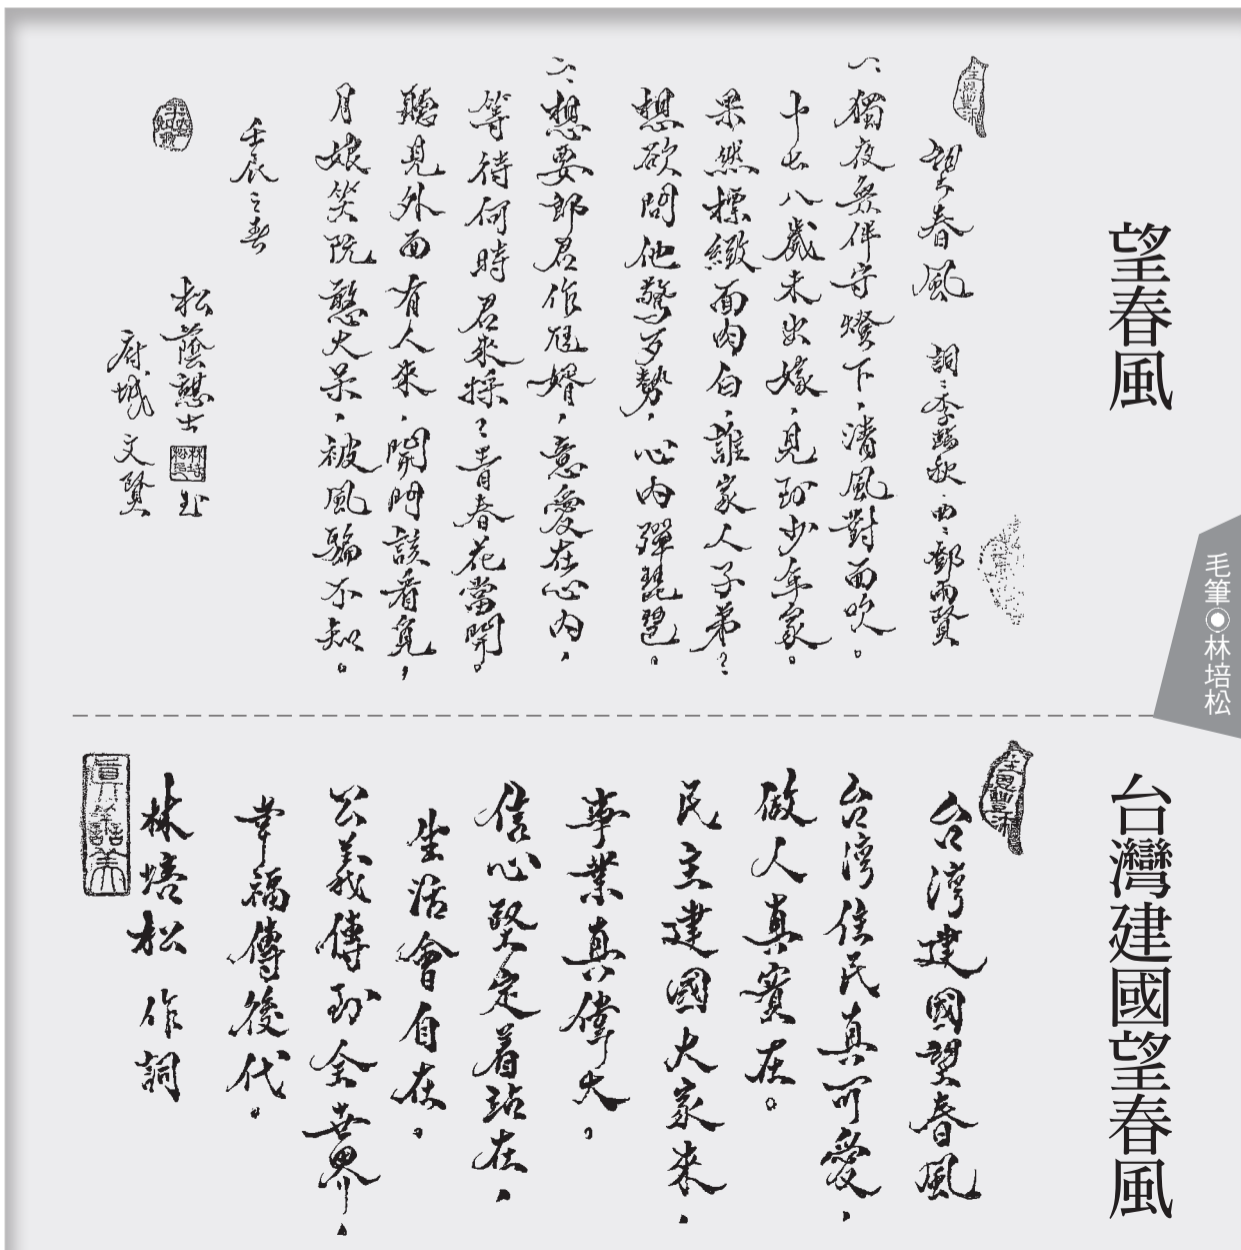 望春風
望春風 詞:李臨秋.曲:鄧雨賢
一、獨夜無伴守燈下,清風對面吹。
十七八歲未出嫁,見到少年家。
果然標緻面肉白,誰家人子弟?
想欲問他驚歹勢,心內彈琵琶。
二、想要郎君作尪婿,意愛在心內,
等待何時君來採?青春花當開。
聽見外面有人來,開門該看覓,
月娘笑阮憨大呆,被風騙不知。
壬辰之春
松蔭憨士
府城文賢
毛筆◉林培松
台灣建國望春風
台湾建國望春風
台湾住民真可愛,
做人真實在。
民主建國大家來,
事業真偉大。
信心堅定着站在,
生活會自在。
公義傳到全世界,
幸福傳後代。
林培松 作詞